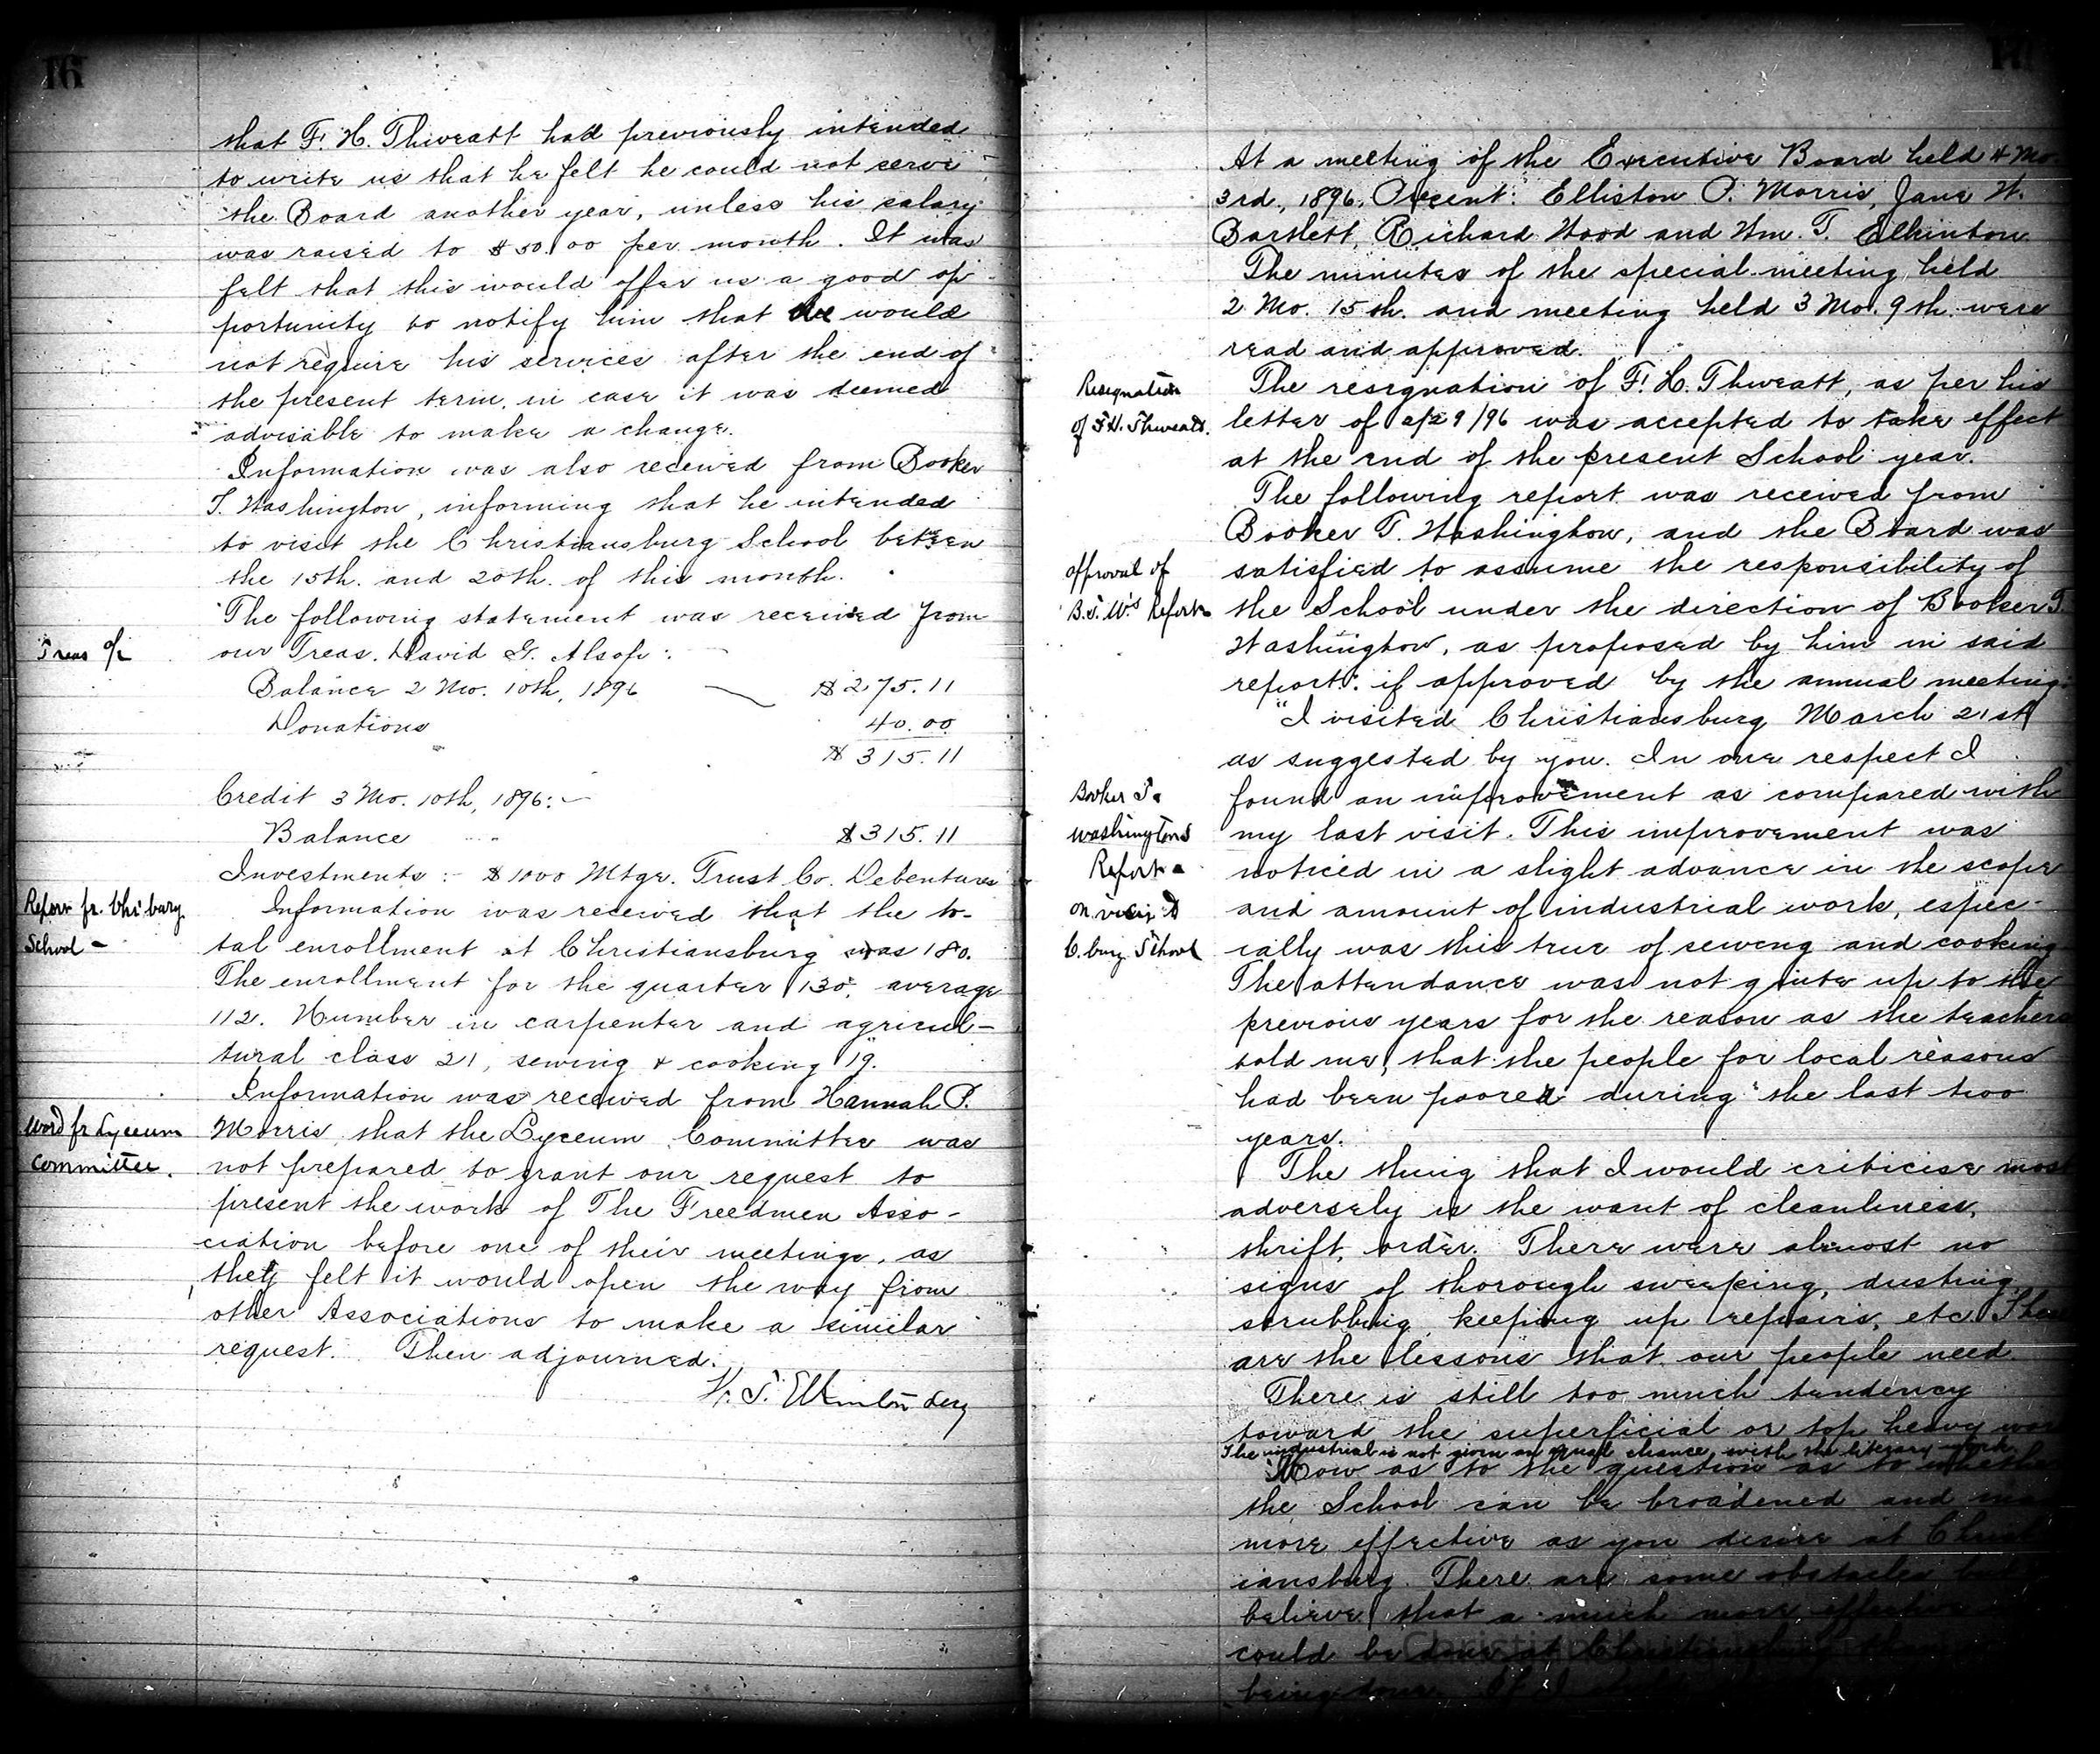 16
that F. H. Thweatt had previously intended
to write us that he felt he could not serve
the Board another year, unless his salary
was raised to $50.00 per month. It was
felt that this would offer us a good op-
portunity to notify him that we would
not require his services after the end of
the present term, in case it was deemed
advisable to make a change.
Information was also received from Booker
T. Washington, informing that he intended
to visit the Christiansburg School between
the 15th. and 20th. of this month.
The following statement was received from
Treas a/c
our Treas. David G. Alsop:
Balance 2 Mo. 10th, 1896 $275.11
Donations 40.00
$315.11
Credit 3 Mo. 10th, 1896:-
Balance $315.11
Investments:- $1000 Mtge. Trust Co. Debentures
Report fr. Chr'burg
School -
Information was received that the to-
tal enrollment at Christiansburg was 180.
The enrollment for the quarter 130, average
112. Number in carpenter and agricul-
tural class 21, sewing & cooking 19.
Information was received from Hannah P.
Word fr Lyceum
Committee.
Morris, that the Lyceum Committee was
not prepared to grant our request to
present the work of The Freedmen Asso-
ciation before one of their meetings, as
they felt it would open the way from
other Associations to make a similar
request. Then adjourned.
W. T. Elkinton Secy
At a meeting of the Executive Board held 4 Mo.
3rd., 1896, Present: Elliston P. Morris, Jane W.
Bartlett, Richard Wood and Wm. T. Elkinton
The minutes of the special meeting held
2 Mo. 15th. and meeting held 3 Mo. 9th. were
read and approved.
Resignation
of F.H. Thweatt.
The resignation of F. H. Thweatt, as per his
letter of 9/96 was accepted to take effect
at the end of the present School year.
The following report was received from
Booker T. Washington, and the Board was
approval of
B.T.W's Report
satisfied to assume the responsibility of
the School under the direction of Booker T.
Washington, as proposed by him in said
report: if approved by the annual meeting.
"I visited Christiansburg March 21st
as suggested by you. In one respect I
Booker T.
Washingtons
Report -
on visit
C.burg School
found an improvement as compared with
my last visit. This improvement was
noticed in a slight advance in the scope
and amount of industrial work, espec-
ially was this true of sewing and cooking
The attendance was not quite up to the
previous years for the reason as the teachers
told me, that the people for local reasons
had been poorer during the last two
years.
The thing that I would criticise most
adversely is the want of cleanliness,
thrift, order. There were almost no
signs of thorough sweeping, dusting,
scrubbing, keeping up repairs, etc.
are the lessons that our people need.
There is still too much tendency
toward the superficial or top heavy
The industrial is not given an equal chance with the literary work
Now as to the question as to whether
the School can be broadened and
more effective as you desire at Christ
iansburg. There are some obstacles
believe that a much more effective
could be done at Christiansburg
being done. If I